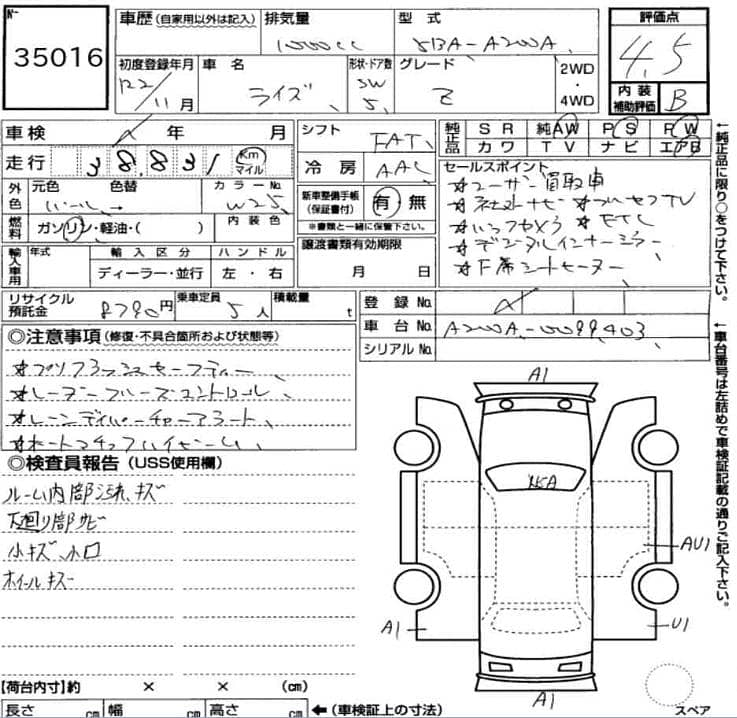 № 35016
車歴(自家用以外は記入)
排気量 1000cc
型式 5BA-A200A
評価点 4.5
内装補助評価 B
初度登録年月 R2/11月
車名 ライズ
形状・ドア数 SW 5
グレード Z
2WD・4WD
車検 年 月
走行 38,831 Km マイル
シフト FAT
冷房 AAC
純正品 SR 純AW PS PW
カワ TV ナビ エアB
外色 元色 パール 色替 →
カラーNo. W25
内装色
燃料 ガソリン・軽油・( )
新車整備手帳(保証書付) 有・無
※書類と一緒に保管下さい。
セールスポイント
☆ユーザー買取車
☆社外ナビ ☆フルセグTV
☆バックカメラ ☆ETC
☆デジタルインナーミラー
☆F席シートヒーター
輸入車用 年式 輸入区分 ハンドル
ディーラー・並行 左・右
譲渡書類有効期限
月 日
リサイクル預託金 8790円
乗車定員 5人
積載量 t
登録No.
車台No. A200A-0099403
シリアルNo.
◎注意事項(修復・不具合箇所および状態等)
☆プリクラッシュセーフティー、
☆レーダークルーズコントロール
☆レーンディパーチャーアラート、
☆オートマチックハイビーム、
◎検査員報告(USS使用欄)
ルーム内部汚れ、キズ
下廻り部サビ
小キズ、小凹
ホイールキズ
A1
AU1
A1
U1
A1
【荷台内寸】約 × × (cm)
長さ cm 幅 cm 高さ cm ←(車検証上の寸法)
スペア
←純正品に限り○をつけて下さい。
←車台番号は左詰めで車検証記載の通りご記入下さい。